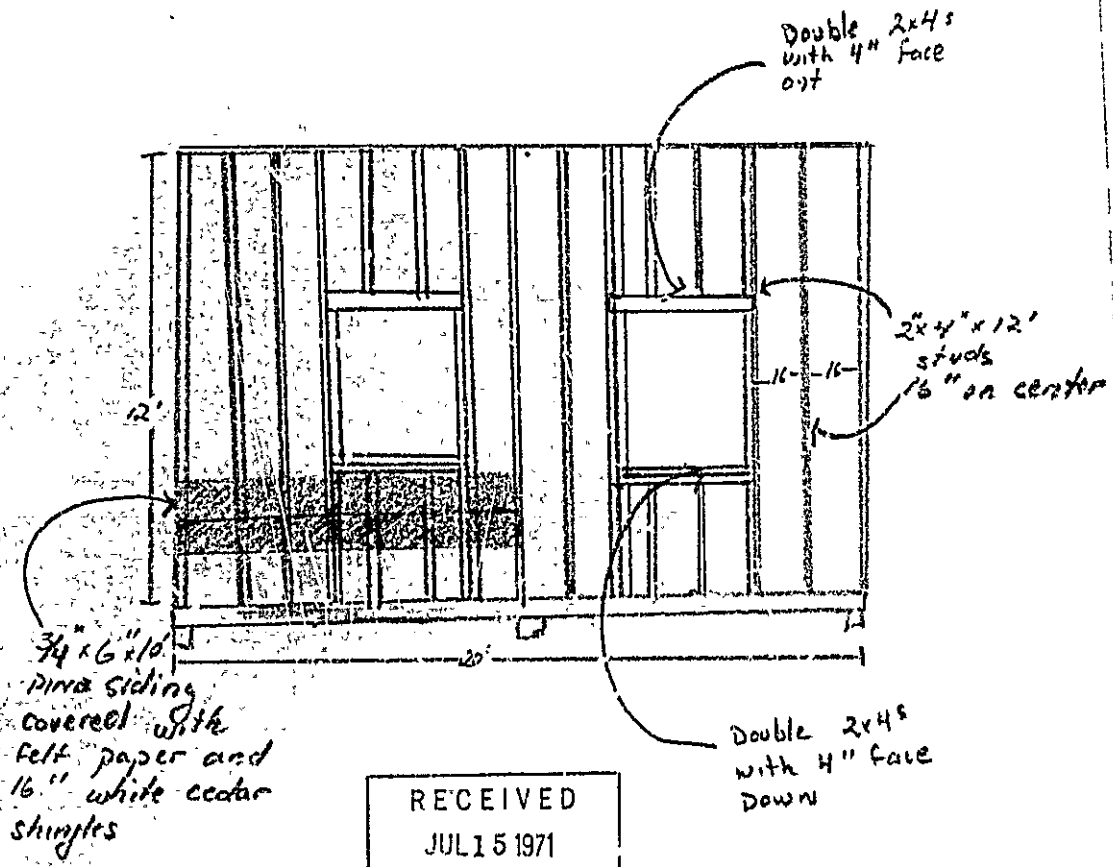 Double 2x4s
with 4" face
out
2"x4"x12'
studs
16" on center
16
16
12'
3/4"x6"x10'
pine siding
covered with
felt paper and
16" white cedar
shingles
20'
Double 2x4s
with 4" face
Down
RECEIVED
JUL 15 1971